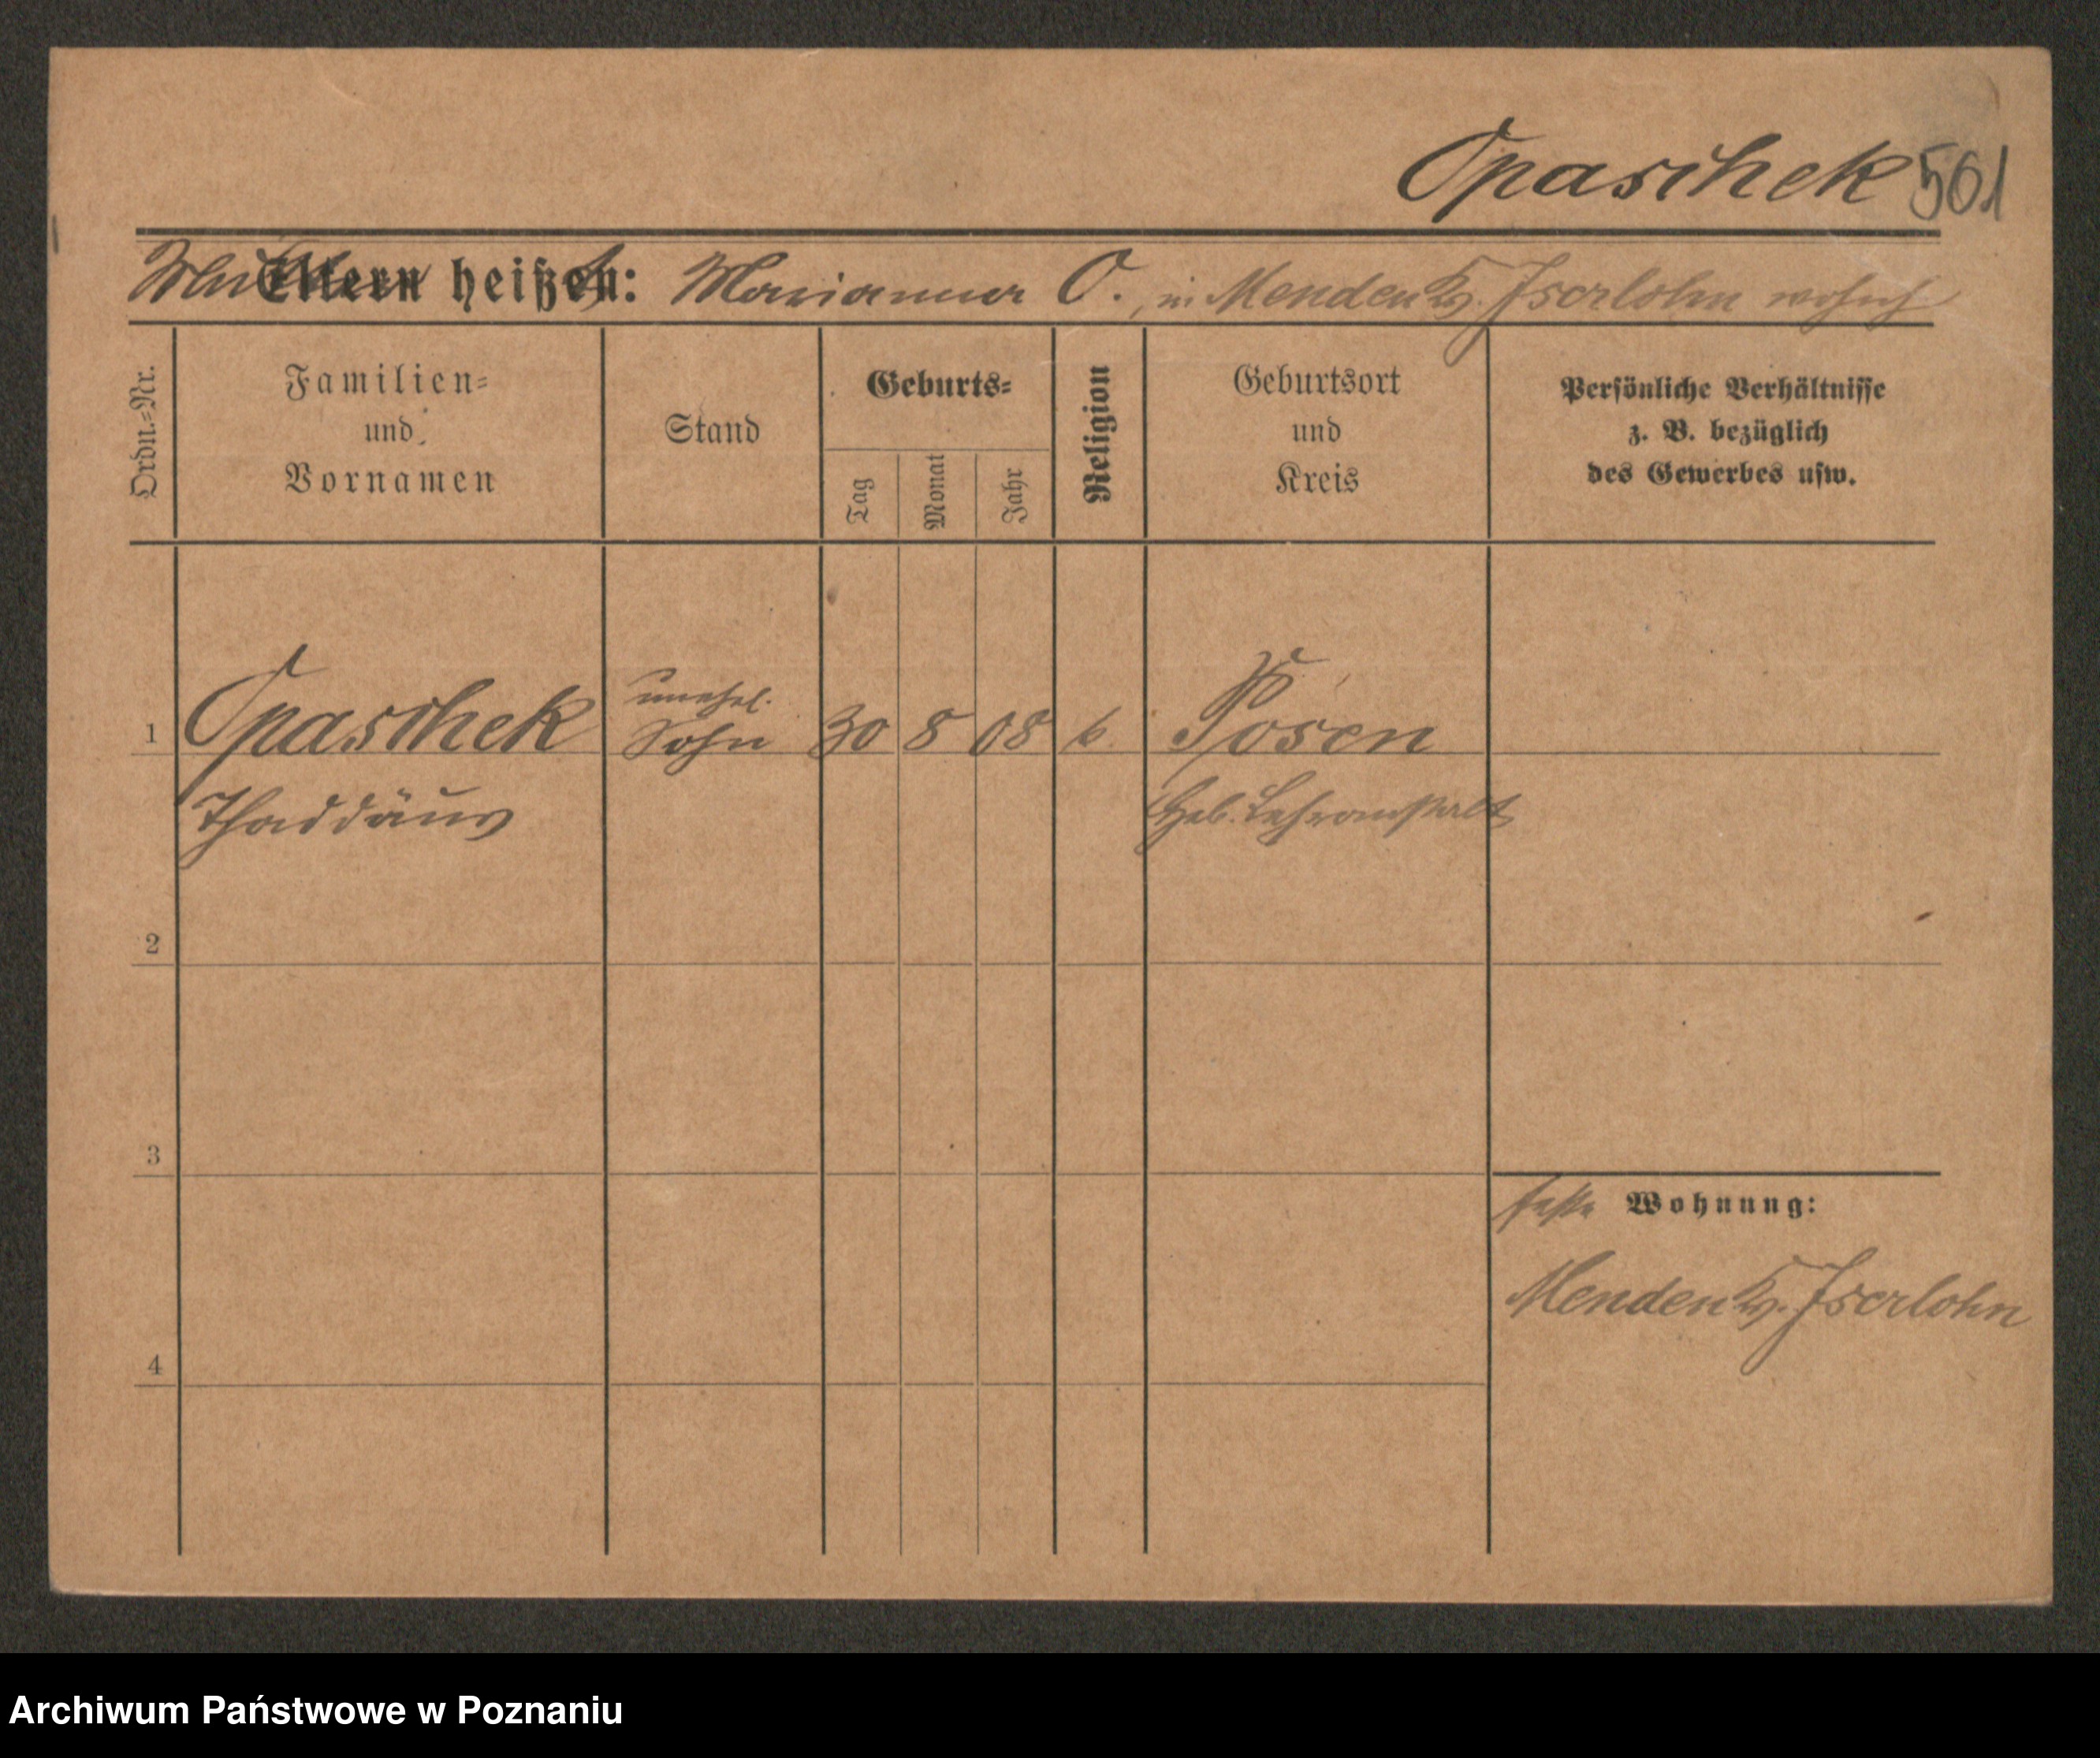 Opaschek 561
Mutter heißt: Marianna O., in Menden Kr. Iserlohn wohnh.
Ordn.=Nr.
Familien=
und
Vornamen
Stand
Geburts=
Tag
Monat
Jahr
Religion
Geburtsort
und
Kreis
Persönliche Verhältnisse
z. B. bezüglich
des Gewerbes usw.
1 Opaschek unehel. Sohn 30 8 08 k. Posen
Thaddäus Heb. Lehranstalt
2
3
feste Wohnung:
Menden Kr. Iserlohn
4
Archiwum Państwowe w Poznaniu